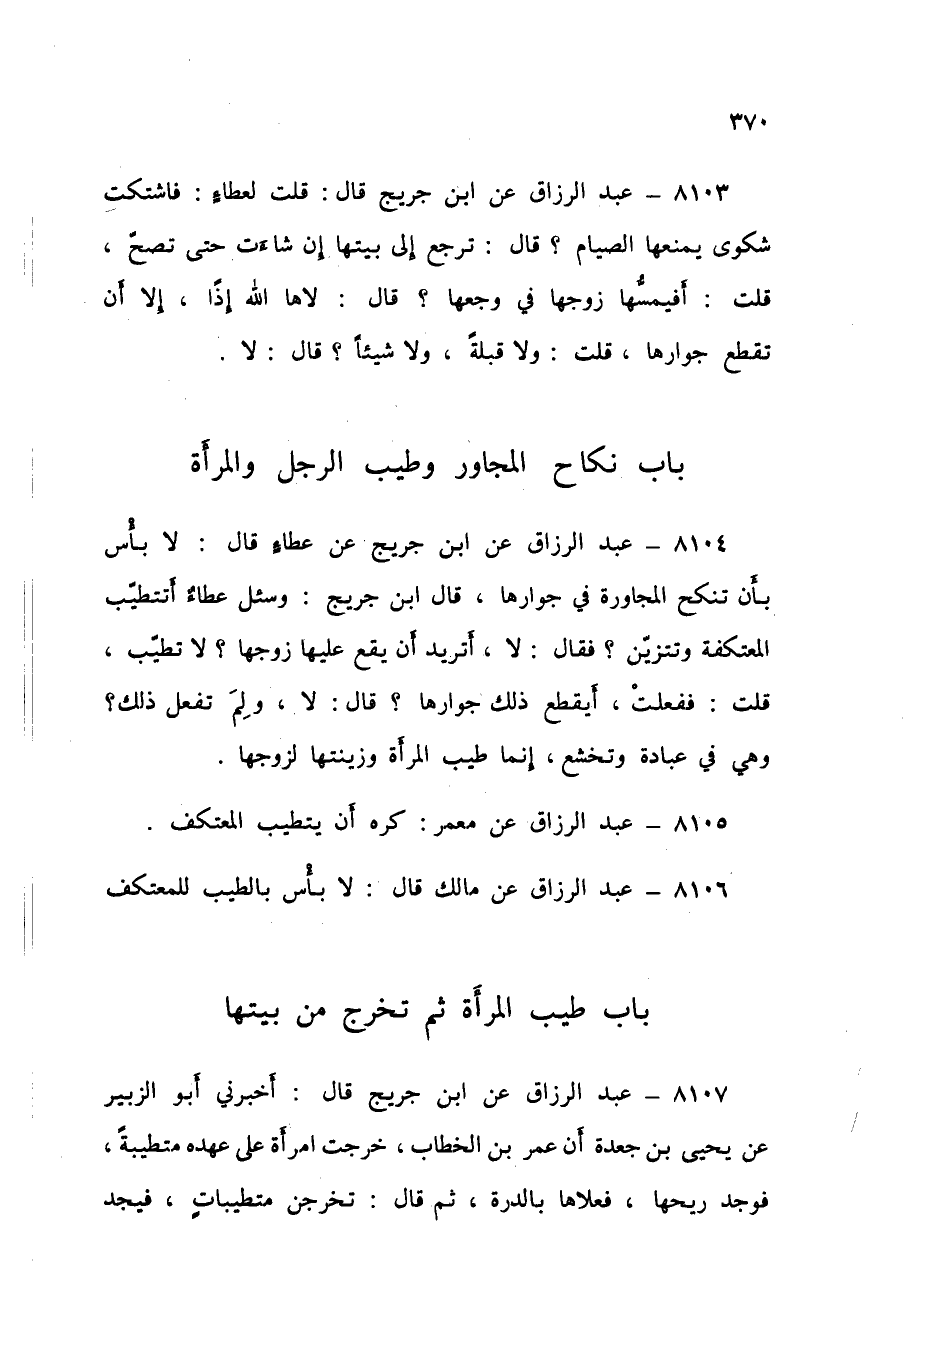 ٣٧٠
٨١٠٣ – عبد الرزاق عن ابن جريج قال : قلت لعطاءٍ : فاشتكت
شكوى يمنعها الصيام ؟ قال : ترجع إلى بيتها إن شاءت حتى تصحّ ،
قلت : أَفيمسُّها زوجها في وجعها ؟ قال : لاها الله إِذًا ، إِلا أَن
تقطع جوارها ، قلت : ولا قبلةً ، ولا شيئاً ؟ قال : لا .
باب نكاح المجاور وطيب الرجل والمرأَة
٨١٠٤ – عبد الرزاق عن ابن جريج عن عطاءٍ قال : لا بأْس
بأَن تنكح المجاورة في جوارها ، قال ابن جريج : وسئل عطاءٌ أَتتطيّب
المعتكفة وتتزيّن ؟ فقال : لا ، أَتريد أَن يقع عليها زوجها ؟ لا تطيّب ،
قلت : ففعلتْ ، أَيقطع ذلك جوارها ؟ قال : لا ، ولِمَ تفعل ذلك؟
وهي في عبادة وتخشع ، إِنما طيب المرأَة وزينتها لزوجها .
٨١٠٥ – عبد الرزاق عن معمر : كره أَن يتطيب المعتكف .
٨١٠٦ – عبد الرزاق عن مالك قال : لا بأْس بالطيب للمعتكف
باب طيب المرأَة ثم تخرج من بيتها
٨١٠٧ – عبد الرزاق عن ابن جريج قال : أَخبرني أَبو الزبير
عن يحيى بن جعدة أَن عمر بن الخطاب ، خرجت امرأَة على عهده متطيبةً ،
فوجد ريحها ، فعلاها بالدرة ، ثم قال : تخرجن متطيباتٍ ، فيجد